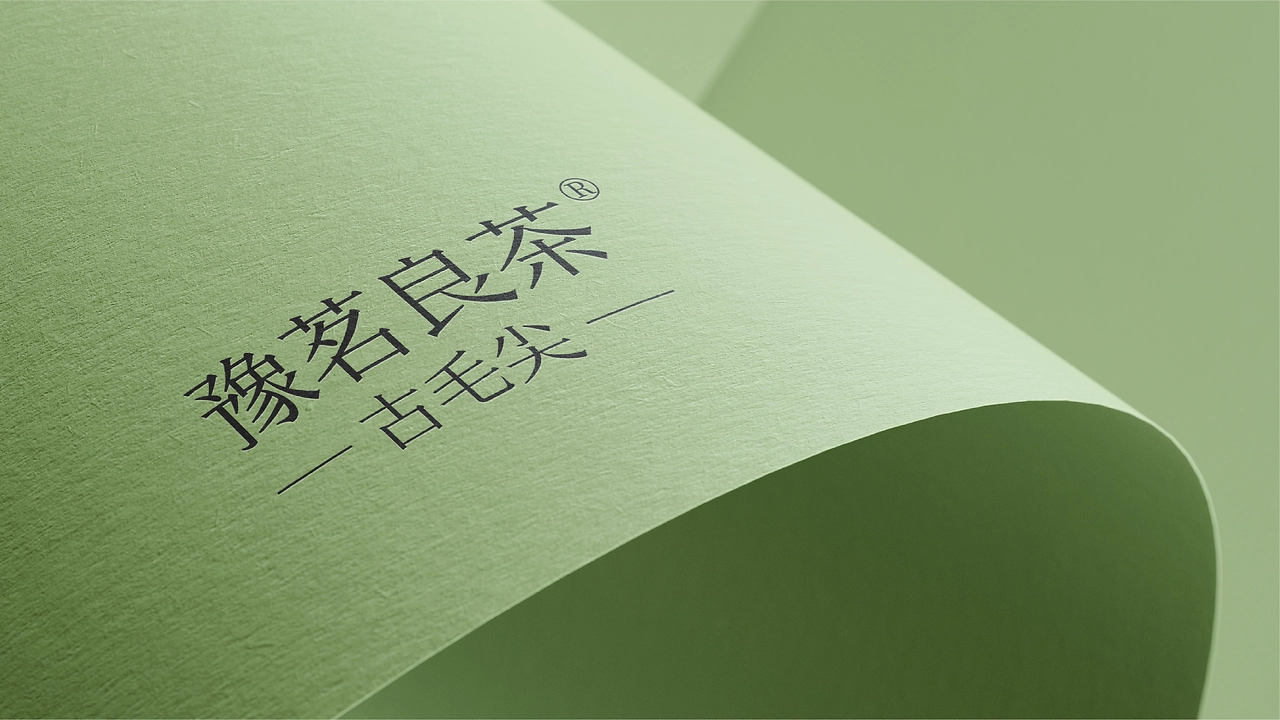 豫茗良茶®
古毛尖